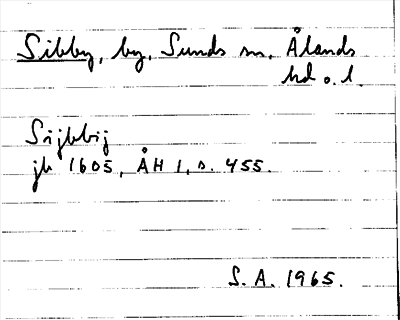 Sibby, by, Sunds sn, Ålands
hd o. l.
Sijbbij
jb 1605, ÅH 1, s. 455.
S. A. 1965.